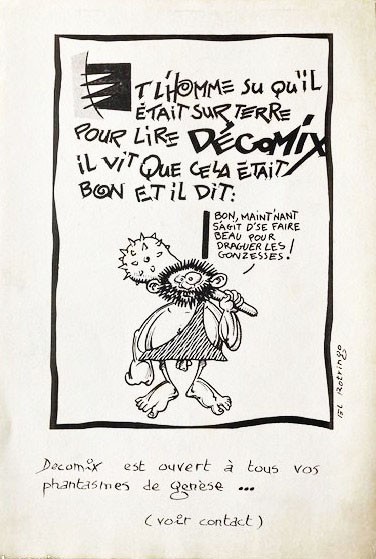 ET L'HOMME SU QU'IL
ÉTAIT SUR TERRE
POUR LIRE DÉCOMIX
iL ViT QUE CELA ÉTAIT
BON ET iL DIT:
BON, MAINT'NANT
S'AGIT D'SE FAIRE
BEAU POUR
DRAGUER LES
GONZESSES!
EL Rotringo
Decomix est ouvert à tous vos
phantasmes de genèse ...
(voir contact)